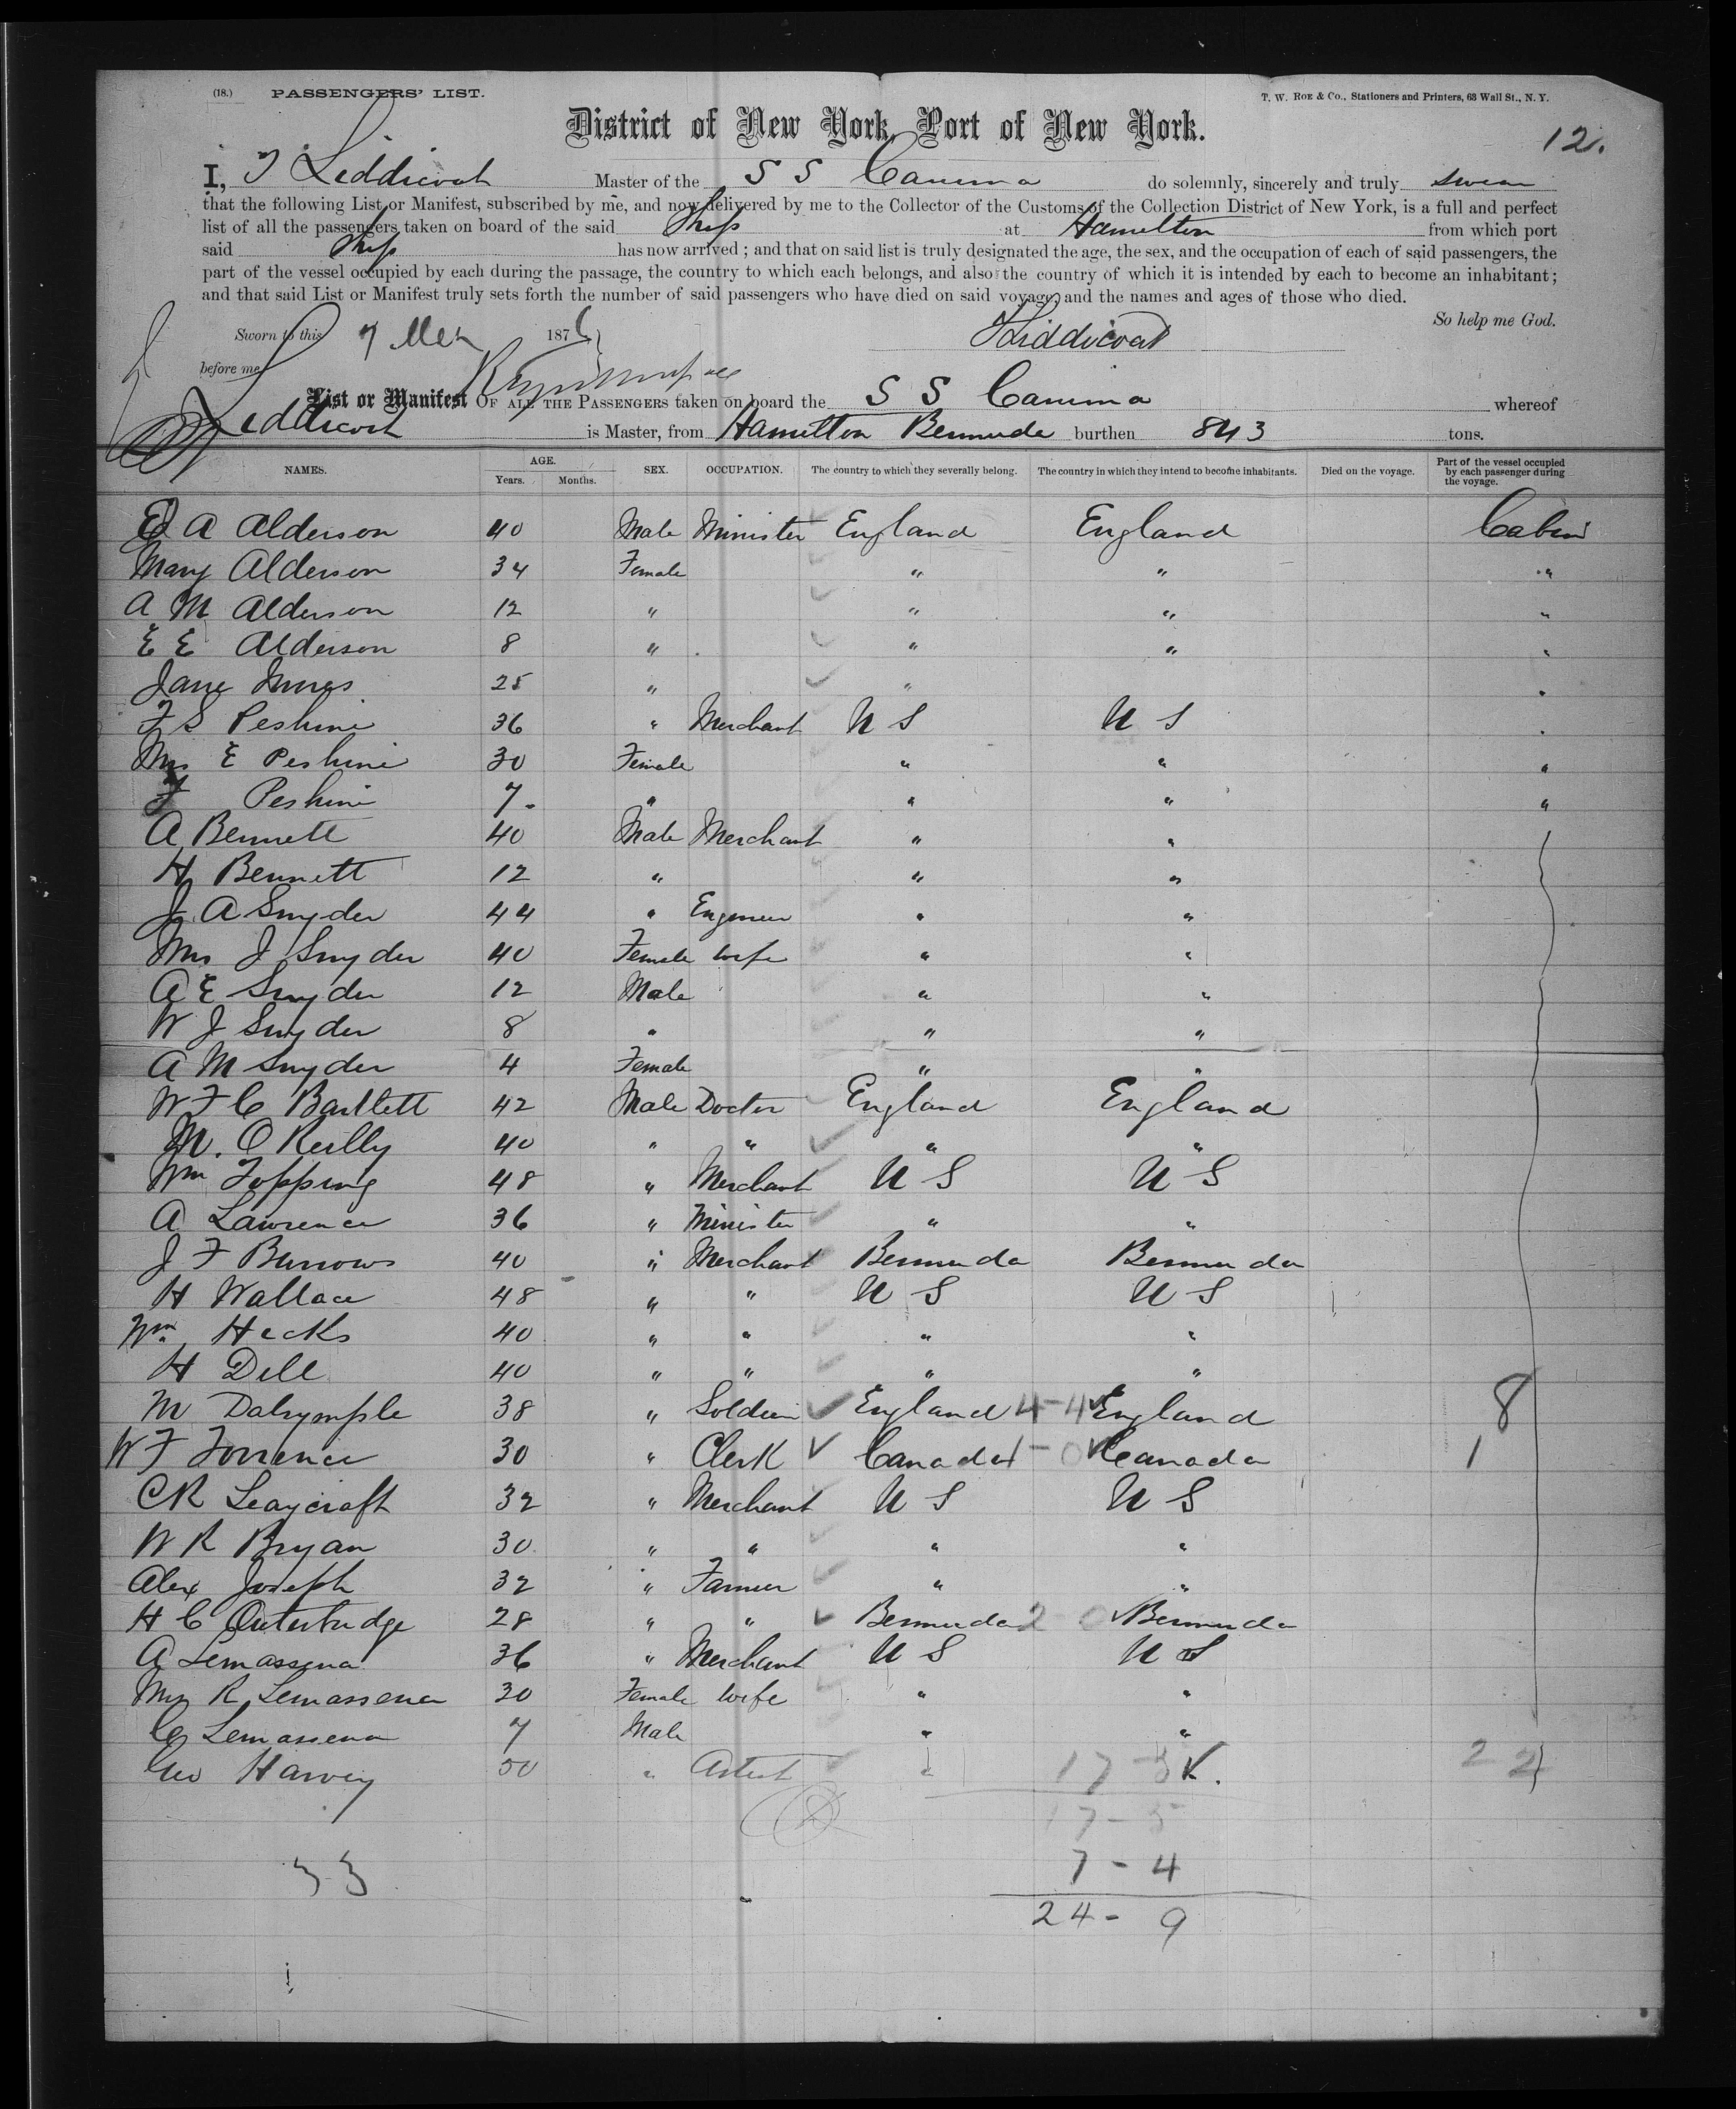 (18.) PASSENGERS' LIST. T. W. ROE & Co., Stationers and Printers, 63 Wall St., N. Y.
District of New York, Port of New York.
12.
I, T Liddicoat Master of the S S Canima do solemnly, sincerely and truly swear
that the following List or Manifest, subscribed by me, and now delivered by me to the Collector of the Customs of the Collection District of New York, is a full and perfect
list of all the passengers taken on board of the said Ship at Hamilton from which port
said Ship has now arrived ; and that on said list is truly designated the age, the sex, and the occupation of each of said passengers, the
part of the vessel occupied by each during the passage, the country to which each belongs, and also the country of which it is intended by each to become an inhabitant ;
and that said List or Manifest truly sets forth the number of said passengers who have died on said voyage, and the names and ages of those who died.
So help me God.
Sworn to this 7 1876 TLiddicoat
before me
List or Manifest OF ALL THE PASSENGERS taken on board the S S Canima whereof
Liddicoat is Master, from Hamilton Bermuda burthen 843 tons.
NAMES. AGE. Years. Months. SEX. OCCUPATION. The country to which they severally belong. The country in which they intend to become inhabitants. Died on the voyage. Part of the vessel occupied by each passenger during the voyage.
A Alderson 40 Male Minister England England Cabin
Mary Alderson 34 Female " " "
A M Alderson 12 " " " "
E E Alderson 8 " " " "
Jane 25 " " "
F S Peshine 36 " Merchant U S U S "
Mrs E Peshine 30 Female " " "
F Peshine 7 " " " "
A Bennett 40 Male Merchant " "
H Bennett 12 " " "
J A Snyder 44 " Engineer " "
Mrs J Snyder 40 Female wife " "
A E Snyder 12 Male " "
W J Snyder 8 " " "
A M Snyder 4 Female " "
W F C Bartlett 42 Male Doctor England England
M. O Reilly 40 " " " "
Wm Topping 48 " Merchant U S U S
A Lawrence 36 " Minister " "
J F Burrows 40 " Merchant Bermuda Bermuda
H Wallace 48 " " U S U S
Wm Hicks 40 " " " "
H Dell 40 " " " "
M Dalrymple 38 " Soldier England 4-4 England 8
W F Torrence 30 " Clerk Canada 1-0 Canada 1
C R Seaycraft 32 " Merchant U S U S
W R Bryan 30 " " " "
Alex Joseph 32 " Farmer " "
H C Outerbridge 28 " " Bermuda 2-0 Bermuda
A Lemassena 36 " Merchant U S U S
Mrs R Lemassena 30 Female wife " "
C Lemassena 7 Male " "
Geo Harvey 50 " Artist " 17-5 22
17-5
33 7-4
24-9